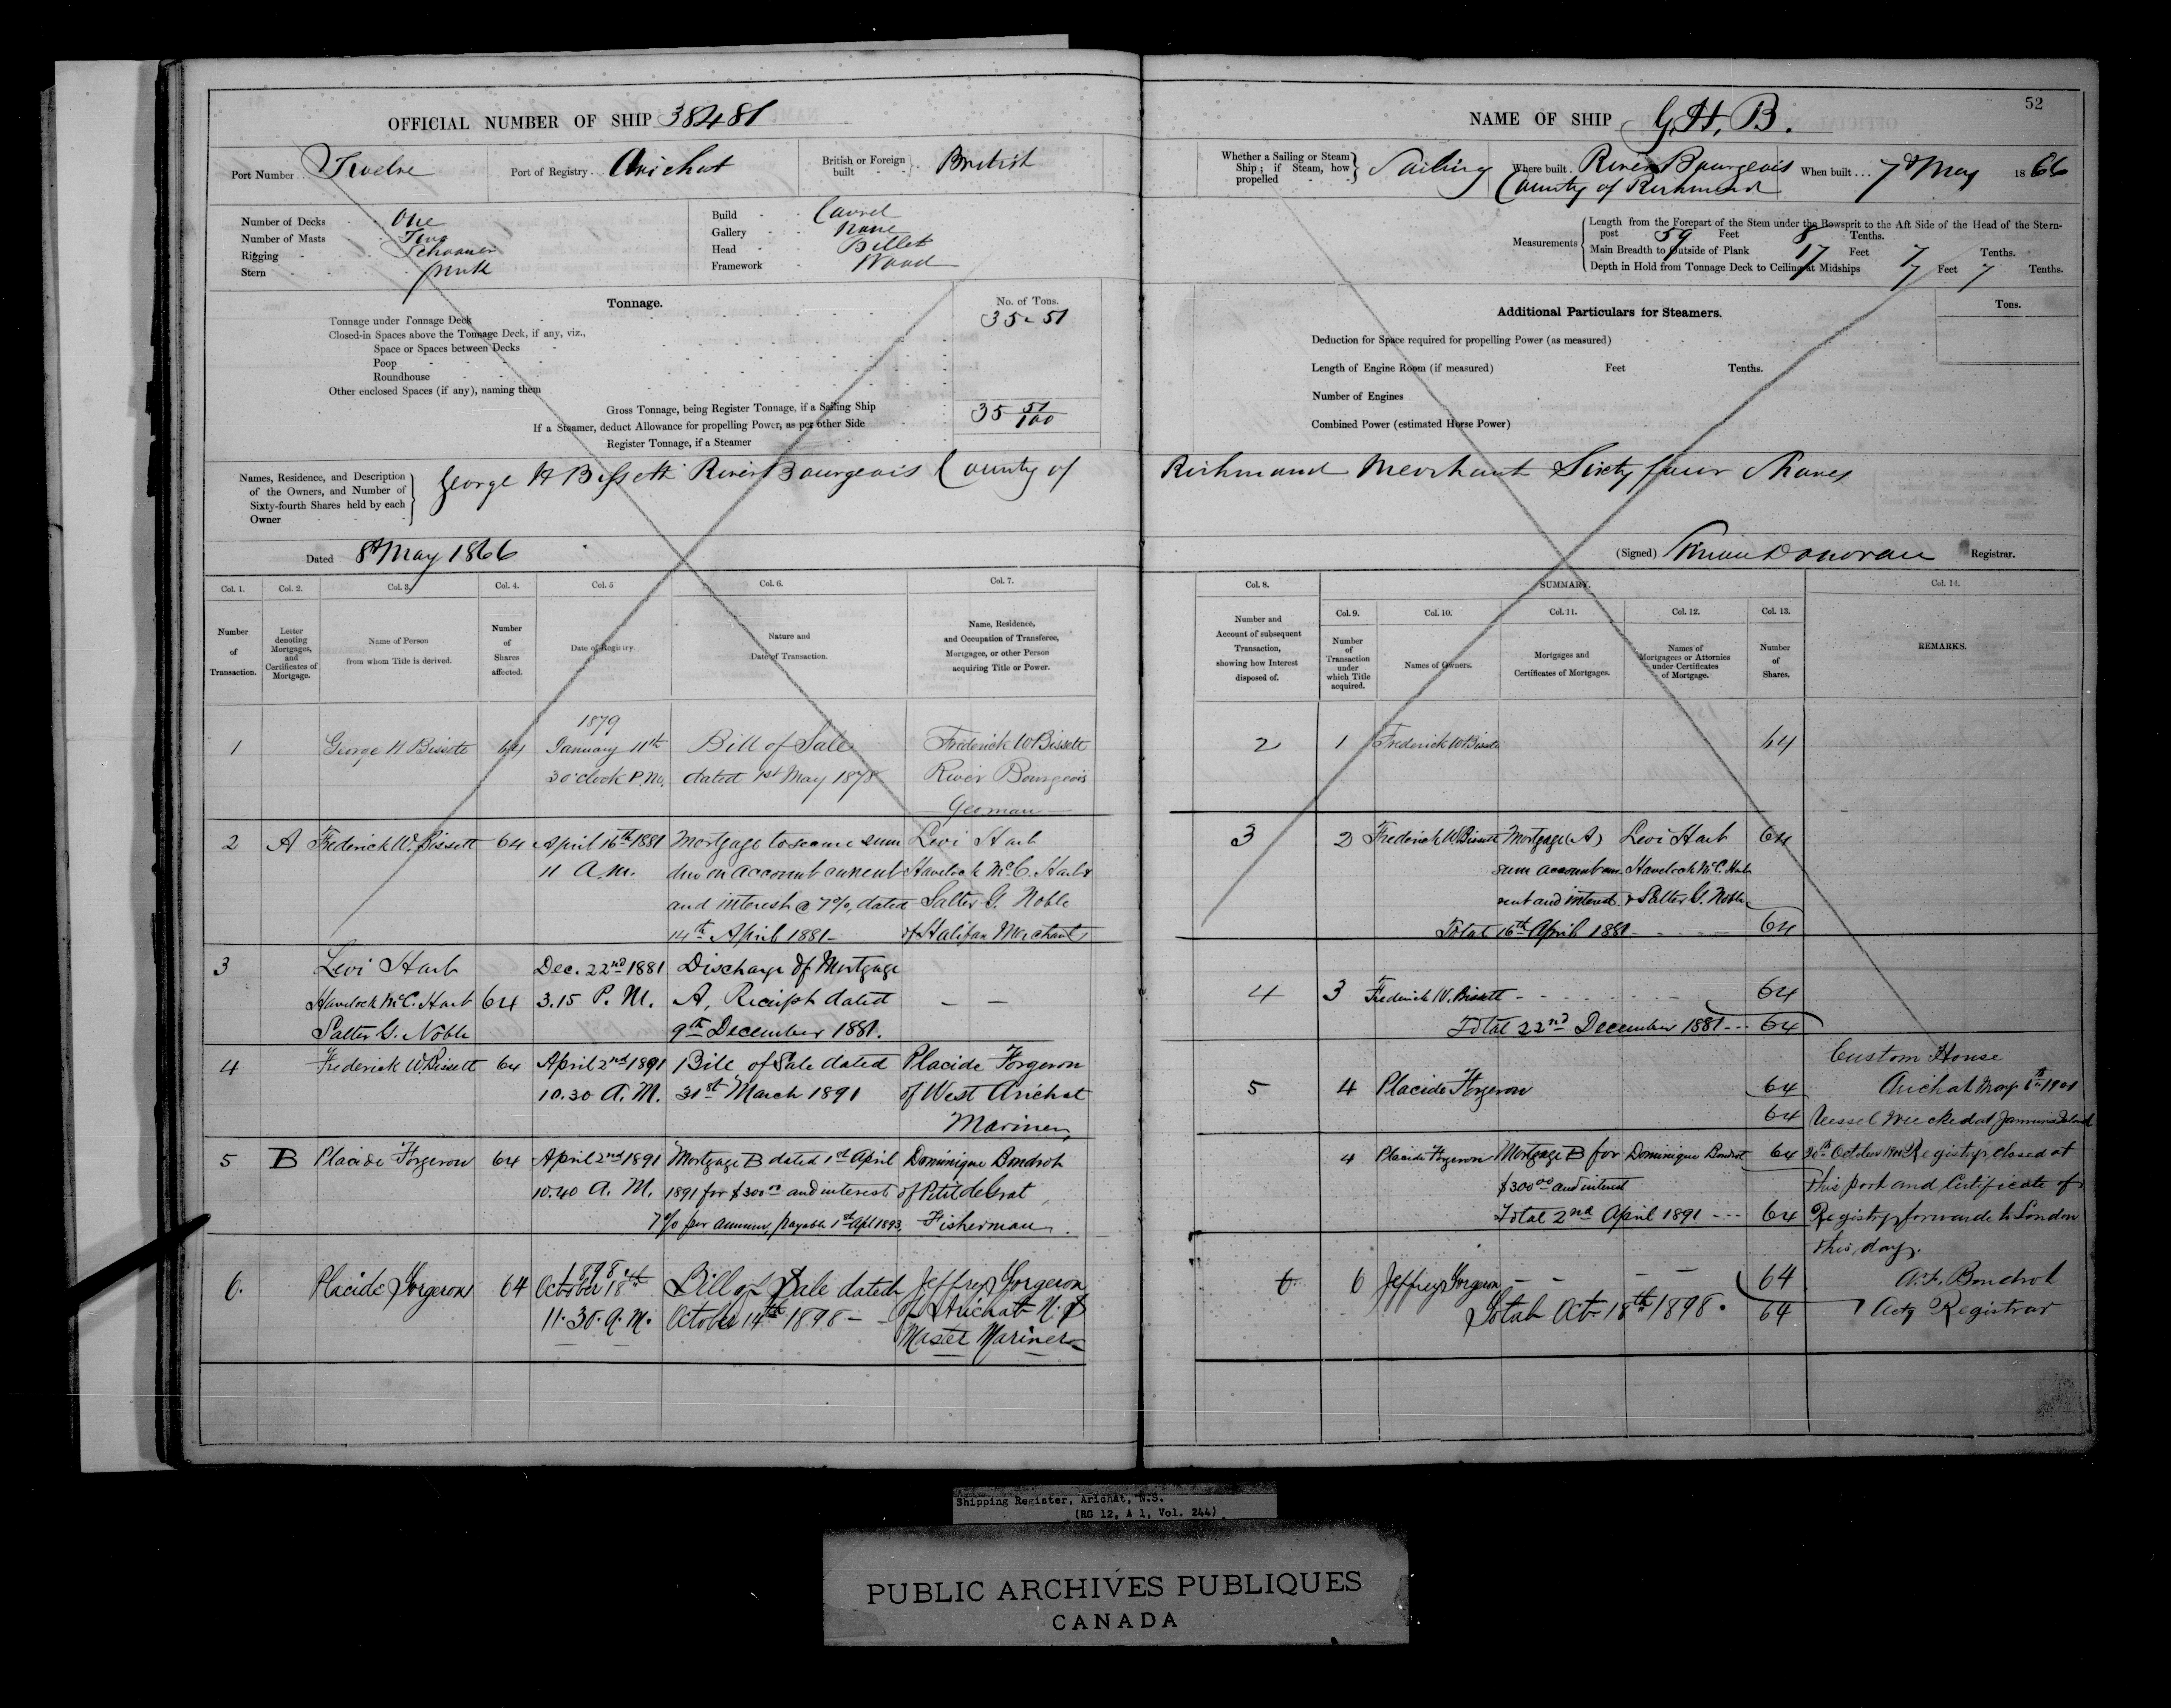 52
OFFICIAL NUMBER OF SHIP 38481
NAME OF SHIP G.H.B.
Port Number Twelve
Port of Registry Arichat
British or Foreign built British
Whether a Sailing or Steam Ship; if Steam, how propelled Sailing
Where built River Bourgeois County of Richmond
When built 7th May 1866
Number of Decks One
Number of Masts Two
Rigging Schooner
Stern Pink
Build Carvel
Gallery None
Head Billet
Framework Wood
Measurements
Length from the Forepart of the Stem under the Bowsprit to the Aft Side of the Head of the Stern-
post 59 Feet 8 Tenths.
Main Breadth to Outside of Plank 17 Feet 7 Tenths.
Depth in Hold from Tonnage Deck to Ceiling at Midships 7 Feet 7 Tenths.
Tonnage.
No. of Tons.
Tonnage under Tonnage Deck 35.51
Closed-in Spaces above the Tonnage Deck, if any, viz.,
Space or Spaces between Decks
Poop
Roundhouse
Other enclosed Spaces (if any), naming them
Gross Tonnage, being Register Tonnage, if a Sailing Ship 35 51/100
If a Steamer, deduct Allowance for propelling Power, as per other Side
Register Tonnage, if a Steamer
Additional Particulars for Steamers.
Tons.
Deduction for Space required for propelling Power (as measured)
Length of Engine Room (if measured) Feet Tenths.
Number of Engines
Combined Power (estimated Horse Power)
Names, Residence, and Description
of the Owners, and Number of
Sixty-fourth Shares held by each
Owner
George H Bissett River Bourgeois County of Richmond Merchant Sixty four Shares
Dated 8th May 1866
(Signed) Donovan Registrar.
Col. 1. Col. 2. Col. 3. Col. 4. Col. 5 Col. 6. Col. 7.
Number of Transaction.
Letter denoting Mortgages, and Certificates of Mortgage.
Name of Person from whom Title is derived.
Number of Shares affected.
Date of Registry
Nature and Date of Transaction.
Name, Residence, and Occupation of Transferee, Mortgagee, or other Person acquiring Title or Power.
1 George H Bissett 64 1879 January 11th 3 o'clock P.M. Bill of Sale dated 1st May 1878 Frederick W Bissett River Bourgeois Yeoman
2 A Frederick W. Bissett 64 April 16th 1881 11 A.M. Mortgage to secure sum due on account current and interest @ 7%, dated 14th April 1881 Levi Hart Havelock McC. Hart & Salter G. Noble of Halifax Merchants
3 Levi Hart Havelock McC. Hart Salter G. Noble 64 Dec. 22nd 1881 3.15 P.M. Discharge of Mortgage A, Receipt dated 9th December 1881.
4 Frederick W. Bissett 64 April 2nd 1891 10.30 A.M. Bill of Sale dated 31st March 1891 Placide Forgeron of West Arichat Mariner
5 B Placide Forgeron 64 April 2nd 1891 10.40 A.M. Mortgage B dated 1st April 1891 for $300 00 and interest 7% per annum, payable 1st Apl 1893, Dominique Boudrot of Petit de Grat Fisherman.
6. Placide Forgeron 64 1898. October 18th 11.30. A.M. Bill of Sale dated October 14th 1898 Jeffrey Forgeron of Arichat N.S Master Mariner
Col. 8. SUMMARY. Col. 14.
Col. 9. Col. 10. Col. 11. Col. 12. Col. 13.
Number and Account of subsequent Transaction, showing how Interest disposed of.
Number of Transaction under which Title acquired.
Names of Owners.
Mortgages and Certificates of Mortgages.
Names of Mortgagees or Attornies under Certificates of Mortgage.
Number of Shares.
REMARKS.
2 1 Frederick W Bissett 64
3 2 Frederick W Bissett Mortgage (A) sum account current and interest Levi Hart Havelock McC. Hart & Salter G. Noble 64
Total 16th April 1881 64
4 3 Frederick W. Bissett 64
Total 22nd December 1881 64
5 4 Placide Forgeron 64
64
4 Placide Forgeron Mortgage B for $300 00 and interest Dominique Boudrot 64
Total 2nd April 1891 64
6 6 Jeffrey Forgeron 64
Total Oct. 18th 1898. 64
Custom House
Arichat May
Vessel wrecked at
October Registry closed at
this port and Certificate of
Registry forwarde to London
this day.
A.F. Boudrot
Actg Registrar
Shipping Register, Arichat, N.S.
(RG 12, A 1, Vol. 244)
PUBLIC ARCHIVES PUBLIQUES
CANADA